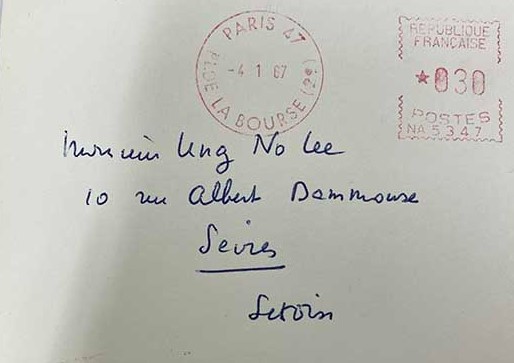 PARIS 47
PL DE LA BOURSE (2e)
-4 1 67
REPUBLIQUE
FRANÇAISE
*030
POSTES
NA 5347
Monsieur Ung No Lee
10 rue Albert Dammouse
Sèvres